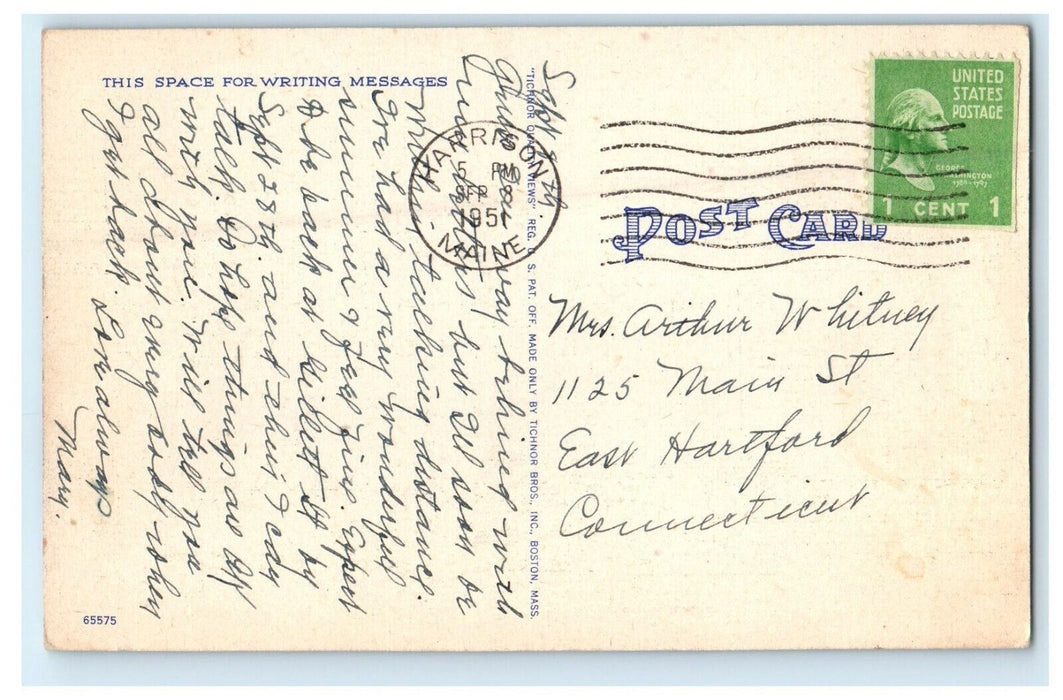 THIS SPACE FOR WRITING MESSAGES
Sept 7th
way behind with
my but I'll soon be
within talking distance.
I've had a very wonderful
summer & feel fine. Expect
to be back at Gillett St by
Sept 28th. and then I can
talk. Do hope things are OK
with you. Will tell you
all about my when
I get back. Love always
Mary.
65575
"TICHNOR QUALITY VIEWS" REG. U. S. PAT. OFF. MADE ONLY BY TICHNOR BROS., INC., BOSTON, MASS.
HARRISON
5 PM
SEP 8
1951
MAINE
UNITED
STATES
POSTAGE
GEORGE
WASHINGTON
1 CENT 1
POST CARD
Mrs. Arthur Whitney
1125 Main St
East Hartford
Connecticut